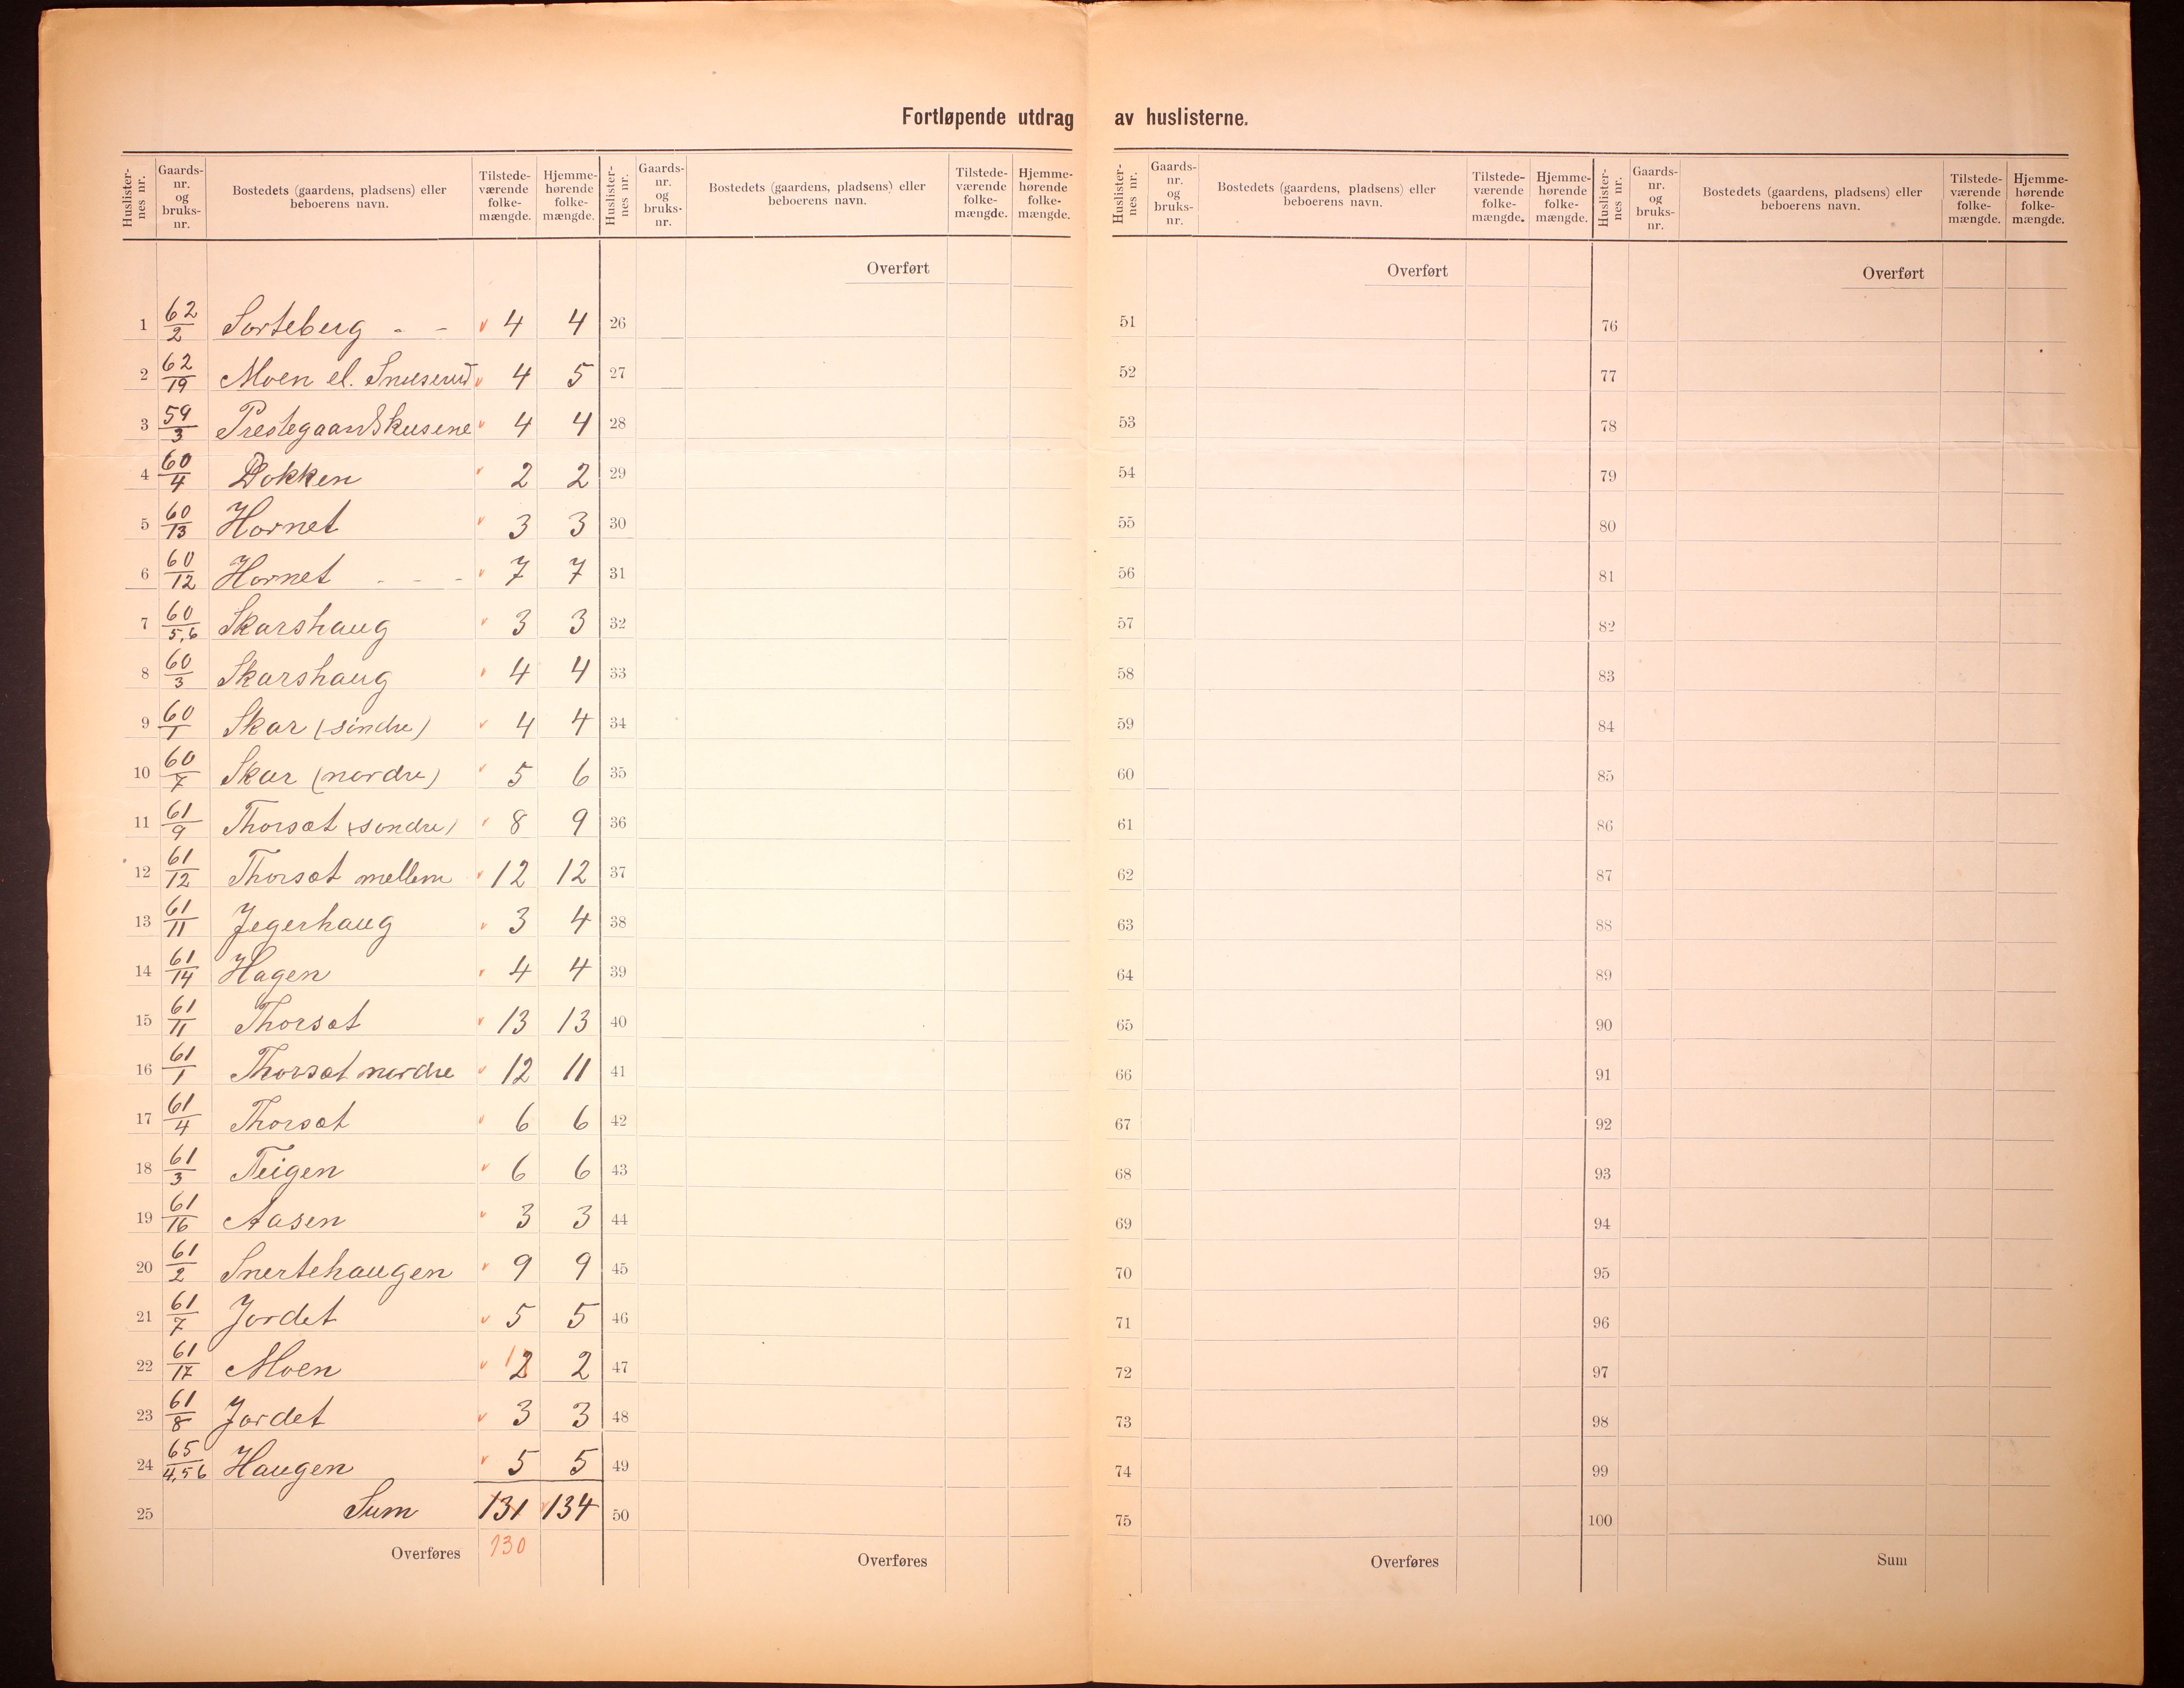 Fortløpende utdrag av huslisterne.
Huslisternes nr. Gaards-nr. og bruks-nr. Bostedets (gaardens, pladsens) eller beboerens navn. Tilstede-værende folke-mængde. Hjemme-hørende folke-mængde.
1 62/2 Sorteberg - - 4 4
2 62/19 Moen el. Snuserud 4 5
3 59/3 Prestegaardskusene 4 4
4 60/4 Dokken 2 2
5 60/13 Hornet 3 3
6 60/12 Hornet - - - 7 7
7 60/5,6 Skarshaug 3 3
8 60/3 Skarshaug 4 4
9 60/1 Skar (sindre) 4 4
10 60/7 Skar (nordre) 5 6
11 61/9 Thorsæt (søndre) 8 9
12 61/12 Thorsæt mellem 12 12
13 61/11 Jegerhaug 3 4
14 61/14 Hagen 4 4
15 61/11 Thorsæt 13 13
16 61/1 Thorsæt nordre 12 11
17 61/4 Thorsæt 6 6
18 61/3 Teigen 6 6
19 61/16 Aasen 3 3
20 61/2 Snertehaugen 9 9
21 61/7 Jordet 5 5
22 61/17 Moen 1 2 2
23 61/8 Jordet 3 3
24 65/4,5 6 Haugen 5 5
25 Sum 131 134
Overføres 130
Huslisternes nr. Gaards-nr. og bruks-nr. Bostedets (gaardens, pladsens) eller beboerens navn. Tilstede-værende folke-mængde. Hjemme-hørende folke-mængde.
Overført
26
27
28
29
30
31
32
33
34
35
36
37
38
39
40
41
42
43
44
45
46
47
48
49
50
Overføres
Huslisternes nr. Gaards-nr. og bruks-nr. Bostedets (gaardens, pladsens) eller beboerens navn. Tilstede-værende folke-mængde. Hjemme-hørende folke-mængde.
Overført
51
52
53
54
55
56
57
58
59
60
61
62
63
64
65
66
67
68
69
70
71
72
73
74
75
Overføres
Huslisternes nr. Gaards-nr. og bruks-nr. Bostedets (gaardens, pladsens) eller beboerens navn. Tilstede-værende folke-mængde. Hjemme-hørende folke-mængde.
Overført
76
77
78
79
80
81
82
83
84
85
86
87
88
89
90
91
92
93
94
95
96
97
98
99
100
Sum